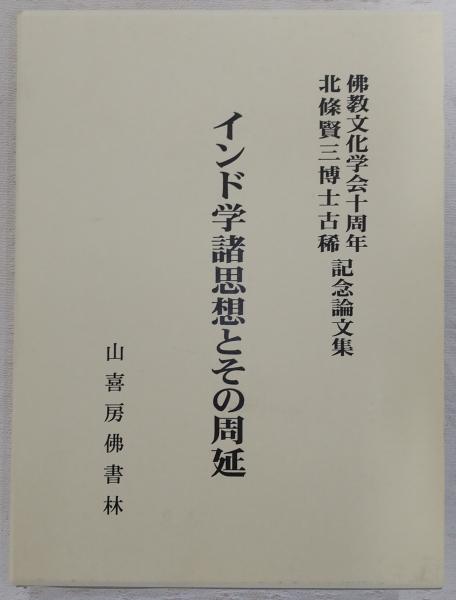 佛教文化学会十周年
北條賢三博士古稀
記念論文集
インド学諸思想とその周延
山喜房佛書林